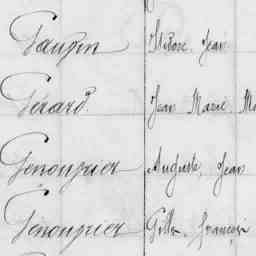 Gaupin Isidore, Jean
Gérard. Jean Marie, Ma
Genouvrier Auguste, Jean
Genouvrier Gilles, François